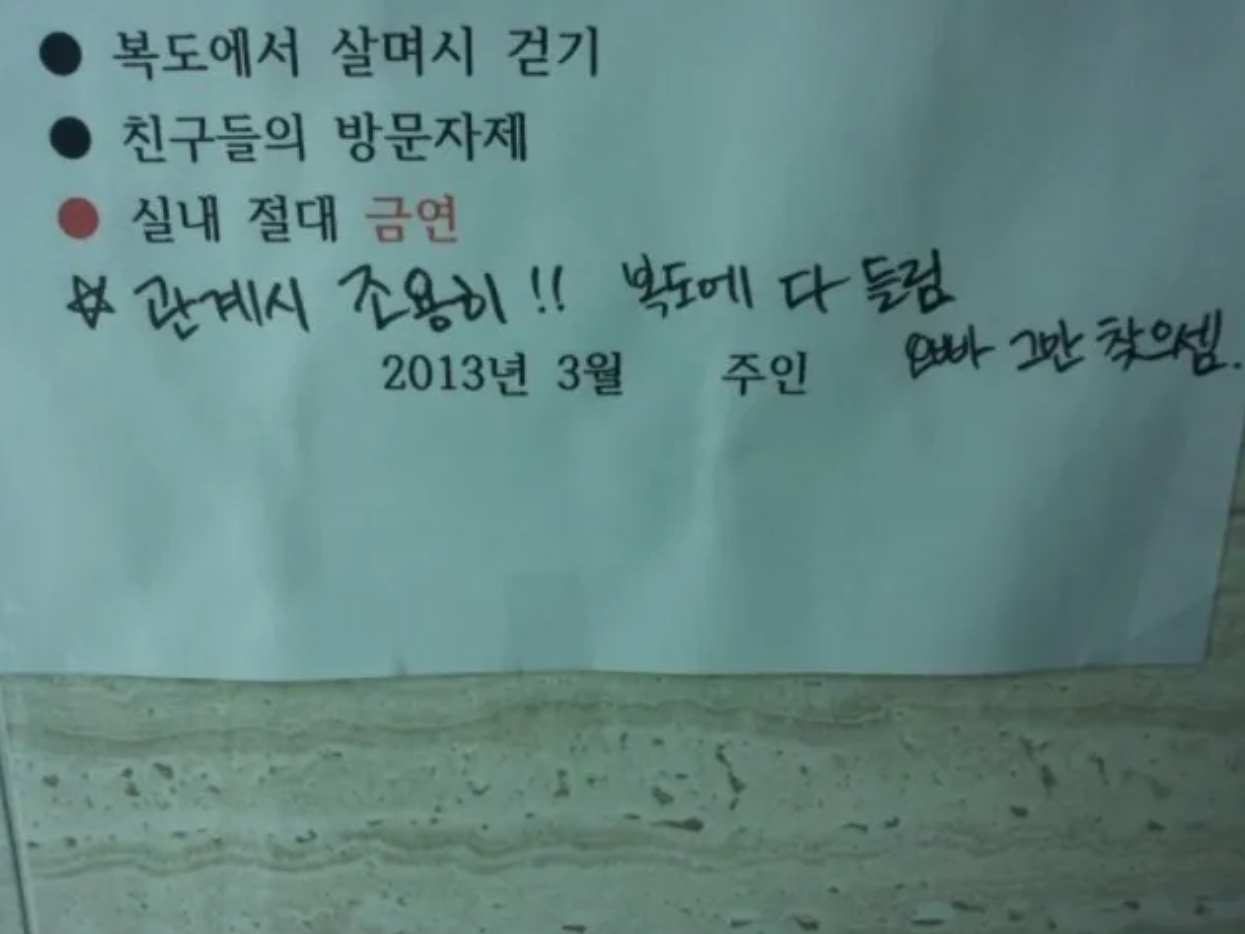 ● 복도에서 살며시 걷기
● 친구들의 방문자제
● 실내 절대 금연
☆ 관계시 조용히!! 복도에 다 들림
오빠 그만 찾으셈.
2013년 3월 주인